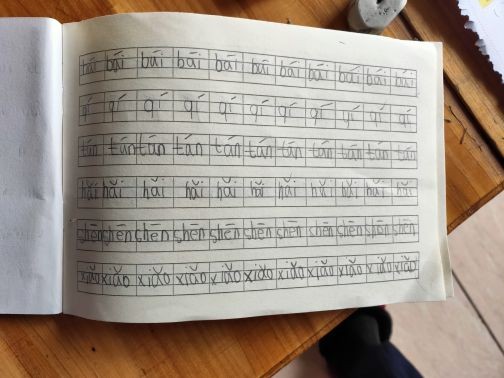 bái bái bái bái bái bái bái bái bái bái bái
qí qí qí qí qí qí qí qí qí qí qí
tán tán tán tán tán tán tán tán tán tán tán
hǎi hǎi hǎi hǎi hǎi hǎi hǎi hǎi hǎi hǎi hǎi
shēn shēn shēn shēn shēn shēn shēn shēn shēn shēn shēn
xiǎo xiǎo xiǎo xiǎo xiǎo xiǎo xiǎo xiǎo xiǎo xiǎo xiǎo